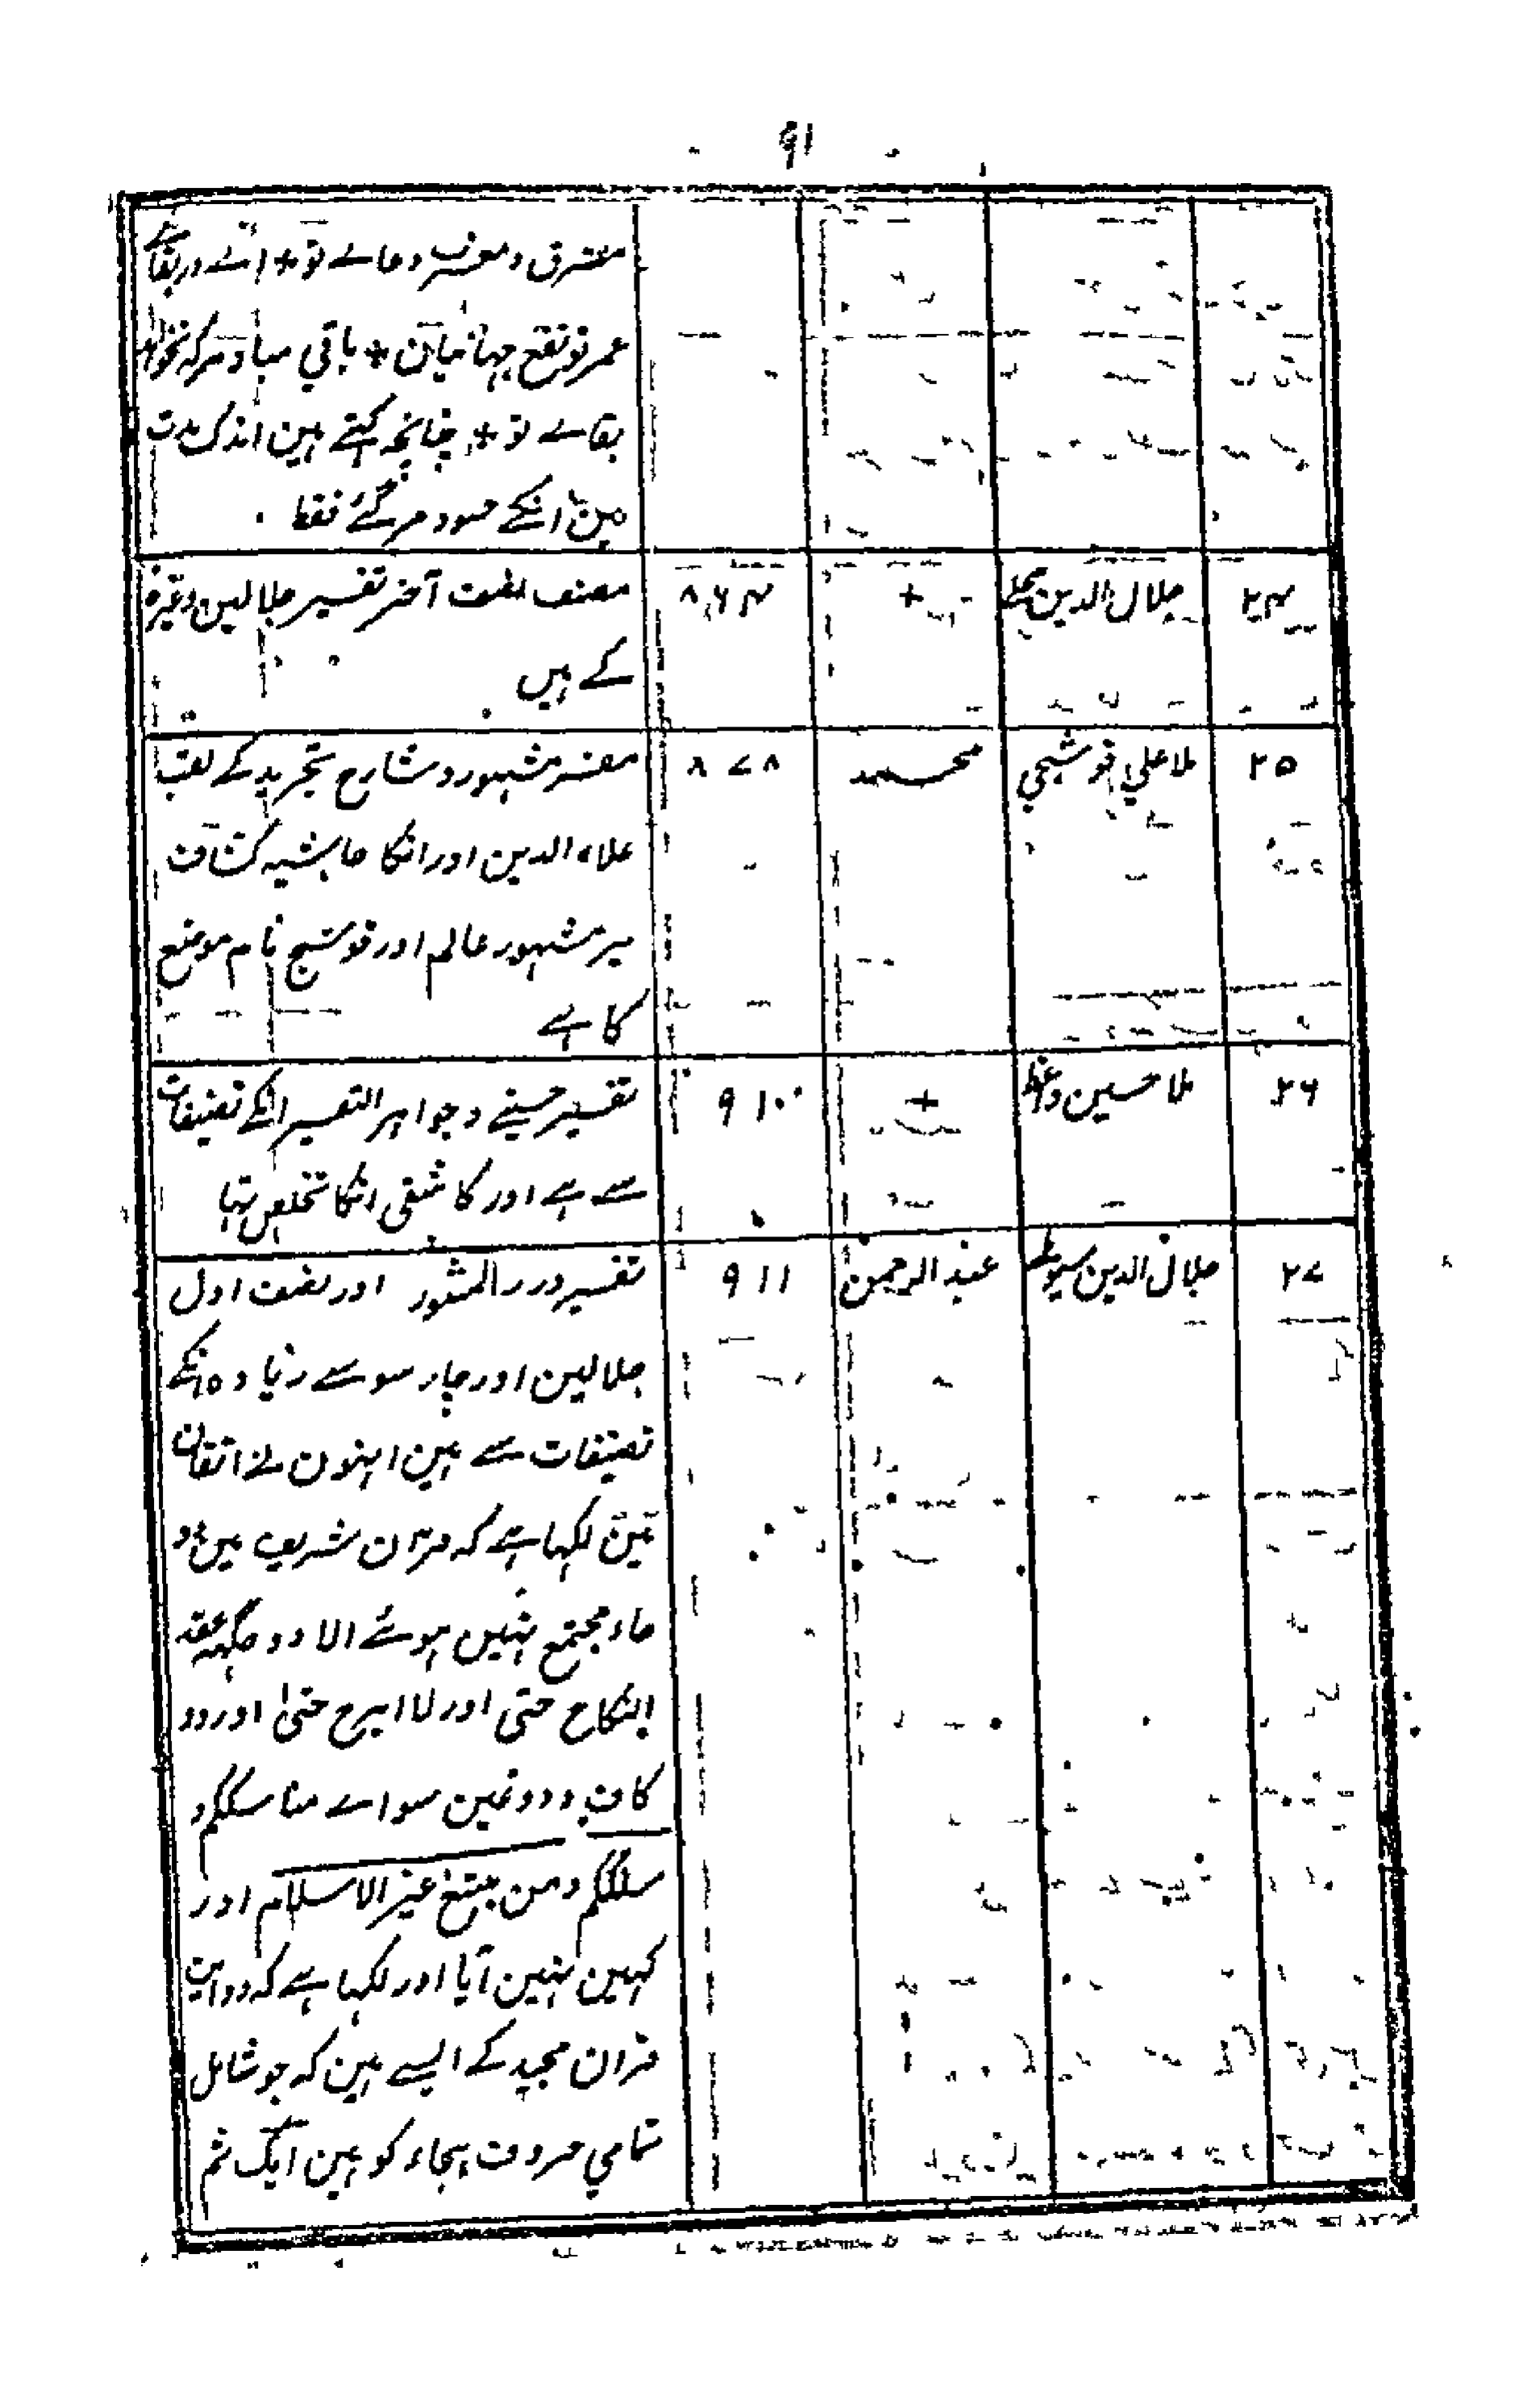 ۹۱
مشرق و مغرب و جاے تو + اے در بقاے
عمر تو نفع جہانیان + باقي مباد هرکه نخواهد
بقاے تو + چنانچہ کہتے ہین اندک مدت
مین انکے حسود مر گئے فقط
۲۴ جلال الدین محلے + ۸۶۴ مصنف نصف آخر تفسیر جلالین وغیرہ
کے ہیں
۲۵ ملا علي قوشجي محمد ۸۷۸ مفسر مشہور و شارح تجرید کے لقب
علاء الدین اور انکا حاشیہ کشاف
پر مشہور عالم اور قوشج نام موضع
کا ہے
۲۶ ملا حسین واعظ + ۹۱۰ تفسیر حسینے و جواہر التفسیر انکے تصنیفات
سے ہے اور کاشفی انکا تخلص تہا
۲۷ جلال الدین سیوطے عبد الرحمن ۹۱۱ تفسیر درر المنثور اور نصف اول
جلالین اور چار سو سے زیادہ انکے
تصنیفات سے ہین انہون نے اتقان
مین لکہا ہے کہ قران شریف مین دو
حاء مجتمع نہین ہوئے الا دو جگہہ عقدۃ
النکاح حتی اور لا ابرح حتیٰ اور دو
کاف و دو غین سواے مناسککم و
سلککم و من یبتغ غیر الاسلام اور
کہین نہین آیا اور لکہا ہے کہ دو آیت
قران مجید کے ایسے ہین کہ جو شامل
تمامي حروف ہجاء کو ہین ایک ثم